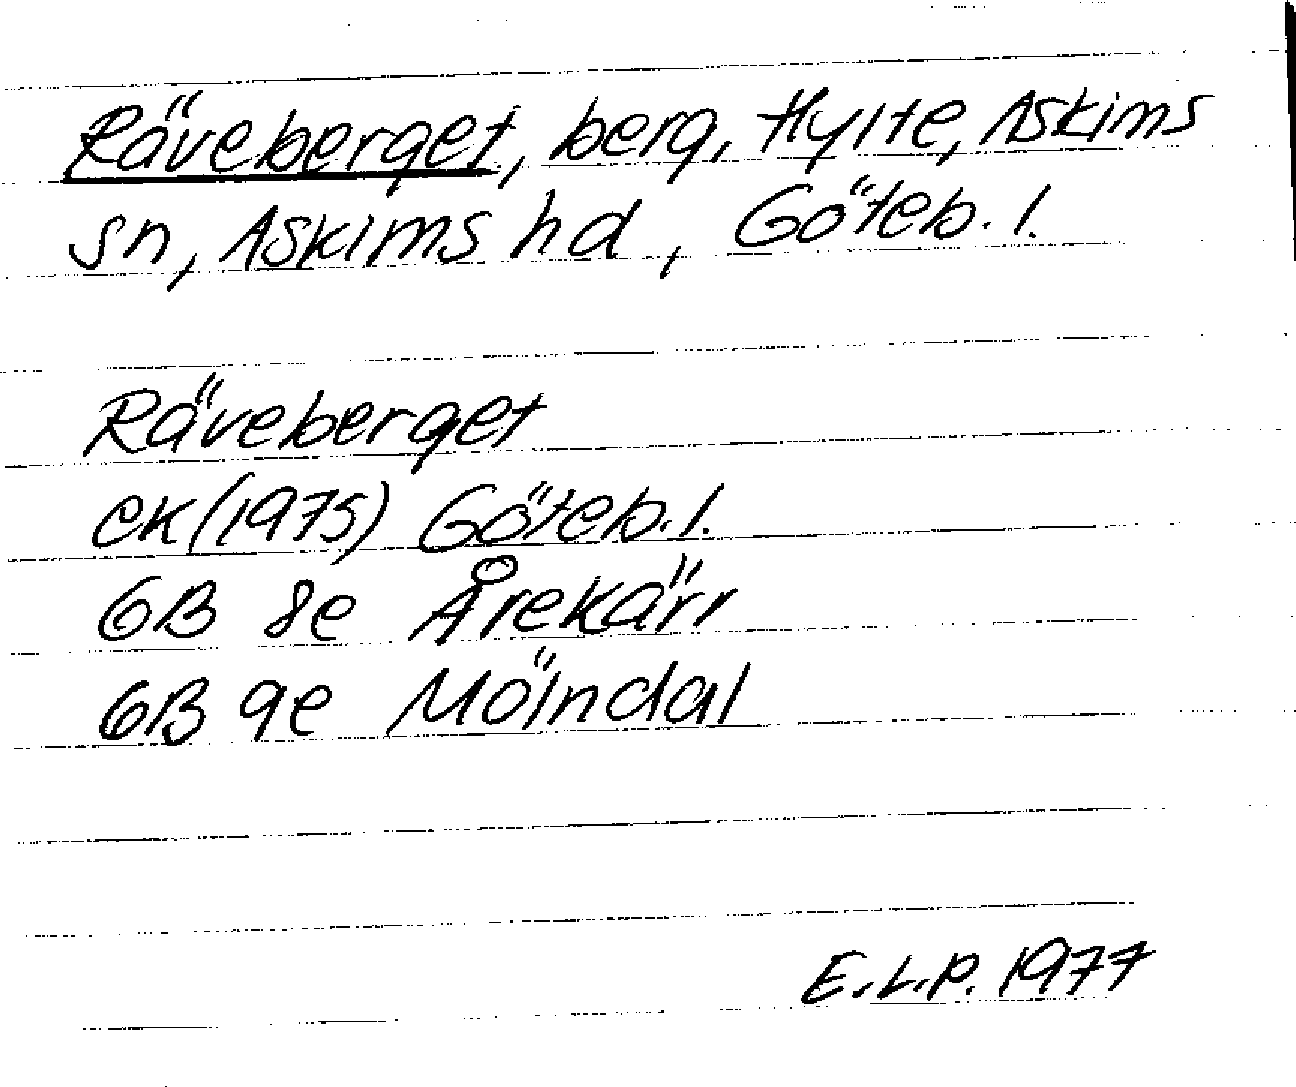 Räveberget, berg, Hylte, Askims
sn, Askims hd, Göteb. l.
Räveberget
ek (1975) Göteb. l.
6B 8e Årekärr
6B 9e Mölndal
E.L.P. 1977